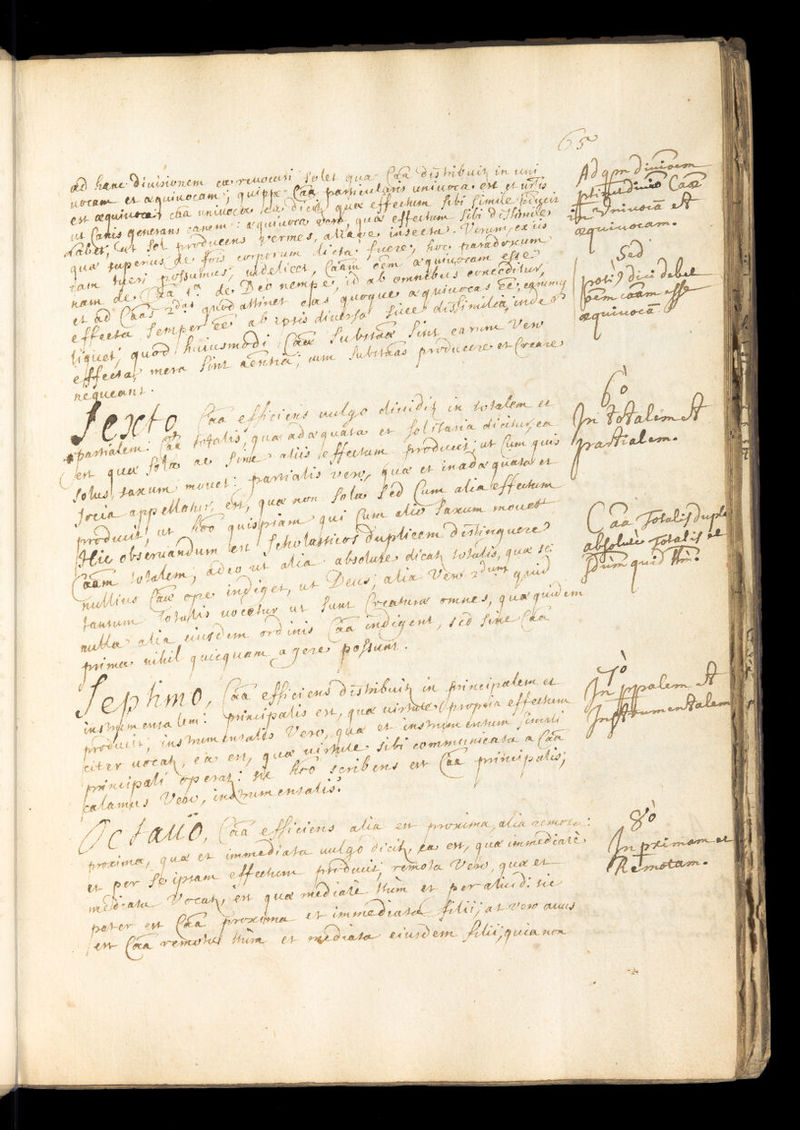 65
ad hanc diuisionem eã reuocari solet qua Caa distribuitz in uni
uocam et æquiuocam; quippe Caa particularis uniuoca est et uñlis
est æquiuoca: cãa uniuoca ea dicitz quæ effectum sibi simile
ut Canis generans canem: æquiuoca vero, quæ effectum sibi dissimile
habet; ut Sol producens vermes, aliaue insecta. Verum ex iis
quæ superius de dicta fuere, hoc paradoxum
iam tueri possumus, uidelicet, Caam oem æquiuocam esse
nam de Caa 1ª de Deo nempe, id ab omnibus conceditur,
et ad Caas 2das quod attinet eas quoque æquiuocas eẽ, earumq
effecta semper eẽ ab ipsis diuersa siue dissimilia, inde
liquet, quod huiusmodi Caæ Substãæ sint earum vero
effecta mera sint accntia; cum Substãas producere et Creare
nequeant.
Ad qm diuioem
ptinet diuio Caæ
in Vniuocã et
æquiuocam.
Sed
potiq dici debet
oem caam esse
æquiuocã
Sexto, Caa efficiens uulgo diuiditz in totalem et
partialem: Caa totalis, quæ adæquata et solitaria dicitur, ea
est quæ sola ac sine aliis effectum producit; ut Cum quis
solus saxum mouet: partialis vero, quæ et inadæquata et
socia appellatur, est, quæ non sola sed Cum alia effectum
producit, ut hõo quispiam qui Cum alio saxum mouet
Hic obseruandum est Scholasticos duplicem distinguere
Caam totalem, adeo ut alia absolute dicatz totalis, quæ sc:
nullius Caæ ope indiget, ut Deus; alia Vero 2dum quid
tantum totalis uocetur ut sunt Creaturæ omnes, quæ quidem
nulla alia eiusdem ordinis Caa indigent, sed sine Caa
prima nihil quicquam agere possunt.
6o
In totalem et
partialem.
Caa Totalis dupla
absolute Totalis et
2dum quid tñ.
Septimo, Caa efficiens distribuitz in principalem et
instrumentalem: principalis est, quæ uirtute propria effectum
producit; instrumentalis Vero, quæ et instrumentum
citer uocatz, ea est, quæ uirtute sibi communicata a Caa
principali operatz: sic hõo scribens est Caa principalis;
calamus Vero, instrumentalis.
7o
In ppalem et
Instrumentalem
Octauo, Caa efficiens alia est proxima, alia remota:
proxima, quæ et immediata uulgo dicitz, ea est, quæ immediate
et per se ipsam effectum producit; remota Vero, quæ et
mediata Vocatz, est quæ mediate tñm et per aliud: sic
pater est Caa proxima et immediata filii; at vero auus
est Caa remota tñm et mediata eiusdem filii; quia non
8o
In proximam et
Remotam.